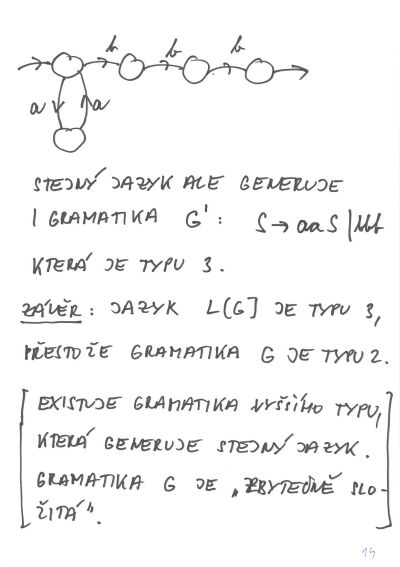 b b b
a a
STEJNÝ JAZYK ALE GENERUJE
I GRAMATIKA G': S → aaS | bbb
KTERÁ JE TYPU 3.
ZÁVĚR: JAZYK L(G) JE TYPU 3,
PŘESTOŽE GRAMATIKA G JE TYPU 2.
EXISTUJE GRAMATIKA VYŠŠÍHO TYPU,
KTERÁ GENERUJE STEJNÝ JAZYK.
GRAMATIKA G JE „ZBYTEČNĚ SLO-
ŽITÁ".
14